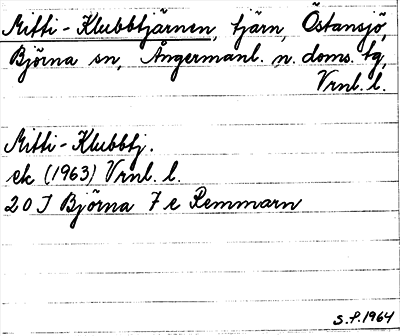 Mitti-Klubbtjärnen, tjärn, Östansjö,
Björna sn, Ångermanl. n. doms. tg,
Vrnl. l.
Mitti-Klubbtj.
ek (1963) Vrnl. l.
20 I Björna 7 e Remmarn
S.P. 1964